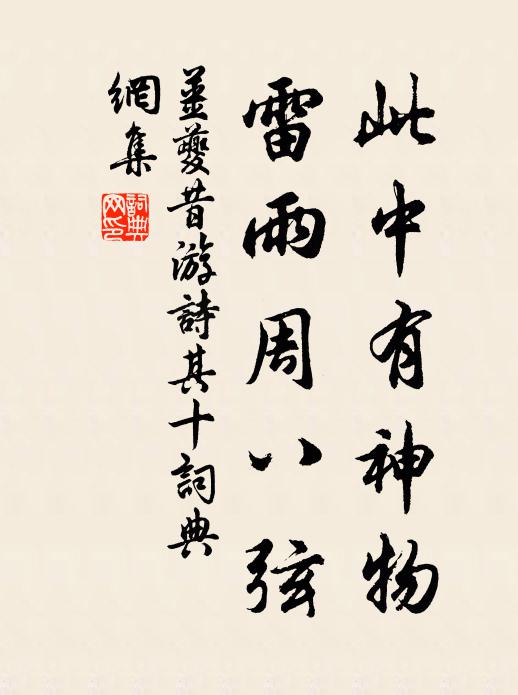 此中有神物
雷雨周八弦
姜夔昔游詩其十詞典
網集
詞典网印